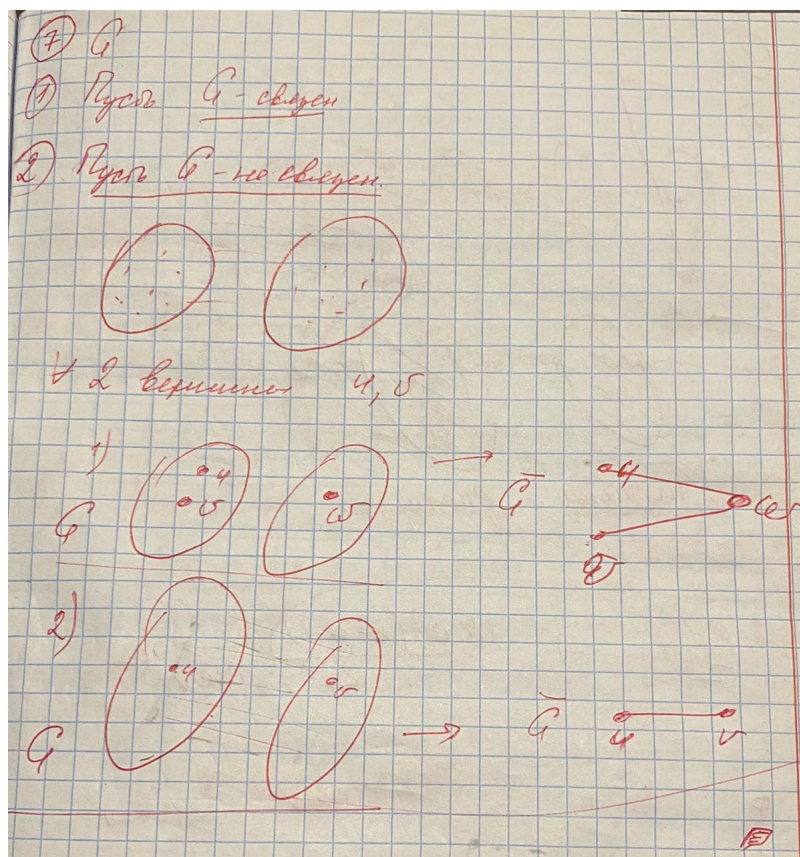 7 G
1 Пусть G - связен
2 Пусть G - не связен.
∀ 2 вершины u, v
1)
u
v
w
G
→
Ḡ
u
w
v
2)
u
v
G
→
Ḡ
u
v